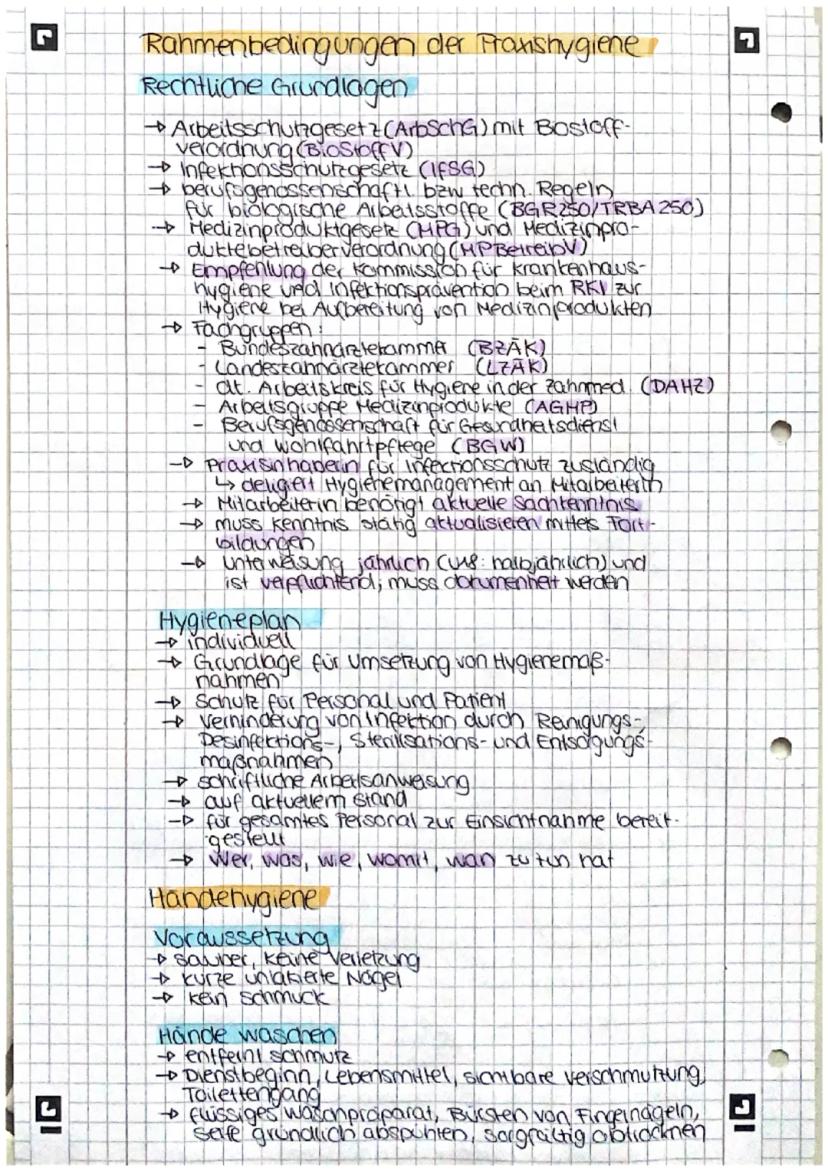 Rahmenbedingungen der Praxishygiene
Rechtliche Grundlagen
→ Arbeitsschutzgesetz (ArbSchG) mit Biostoff-
verordnung (BioStoffV)
→ Infektionsschutzgesetz (IFSG)
→ berufsgenossenschaftl. bzw techn. Regeln
für biologische Arbeitsstoffe (BGR250/TRBA250)
→ Medizinproduktgesetz (MPG) und Medizinpro-
duktebetreiberverordnung (MPBetreibV)
→ Empfehlung der Kommission für Krankenhaus-
hygiene und Infektionsprävention beim RKI zur
Hygiene bei Aufbereitung von Medizinprodukten
→ Fachgruppen:
- Bundeszahnärztekammer (BZÄK)
- Landeszahnärztekammer (LZÄK)
- dt. Arbeitskreis für Hygiene in der Zahnmed. (DAHZ)
- Arbeitsgruppe Medizinprodukte (AGMP)
- Berufsgenossenschaft für Gesundheitsdienst
und Wohlfahrtpflege (BGW)
→ Praxisinhaberin für Infectionsschutz zuständig
↳ deligiert Hygienemanagement an Mitarbeiterin
→ Mitarbeiterin benötigt aktuelle Sachkenntnis
→ muss Kenntnis stätig aktualisieren mittels Fort-
bildungen
→ Unterweisung jährlich (U18: halbjährlich) und
ist verpflichtend, muss dokumentiert werden
Hygieneplan
→ individuell
→ Grundlage für Umsetzung von Hygienemaß-
nahmen
→ Schutz für Personal und Patient
→ Verhinderung von Infektion durch Reinigungs-,
Desinfektions-, Sterilisations- und Entsorgungs-
maßnahmen
→ schriftliche Arbeitsanweisung
→ auf aktuellem Stand
→ für gesamtes Personal zur Einsichtnahme bereit-
gestellt
→ Wer, was, wie, womit, wan zu tun hat
Händehygiene
Voraussetzung
→ sauber, keine Verletzung
→ kurze unlakierte Nägel
→ kein Schmuck
Hände waschen
→ entfernt Schmutz
→ Dienstbeginn, Lebensmittel, sichtbare Verschmutzung,
Toilettengang
→ flüssiges Waschpräparat, Bürsten von Fingernägeln,
Seife gründlich abspühlen, sorgfältig abtrocknen